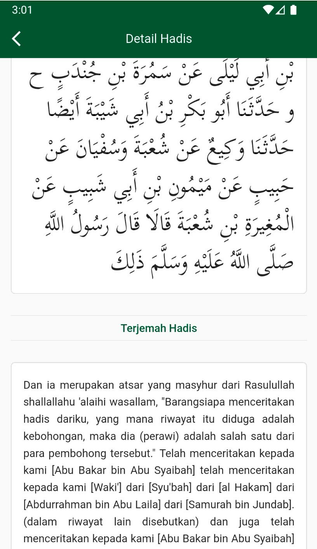 3:01
Detail Hadis
بْنِ أَبِي لَيْلَى عَنْ سَمُرَةَ بْنِ جُنْدَبٍ ح
و حَدَّثَنَا أَبُو بَكْرِ بْنُ أَبِي شَيْبَةَ أَيْضًا
حَدَّثَنَا وَكِيعٌ عَنْ شُعْبَةَ وَسُفْيَانَ عَنْ
حَبِيبٍ عَنْ مَيْمُونِ بْنِ أَبِي شَبِيبٍ عَنْ
الْمُغِيرَةِ بْنِ شُعْبَةَ قَالَا قَالَ رَسُولُ اللَّهِ
صَلَّى اللَّهُ عَلَيْهِ وَسَلَّمَ ذَلِكَ
Terjemah Hadis
Dan ia merupakan atsar yang masyhur dari Rasulullah
shallallahu 'alaihi wasallam, "Barangsiapa menceritakan
hadis dariku, yang mana riwayat itu diduga adalah
kebohongan, maka dia (perawi) adalah salah satu dari
para pembohong tersebut." Telah menceritakan kepada
kami [Abu Bakar bin Abu Syaibah] telah menceritakan
kepada kami [Waki'] dari [Syu'bah] dari [al Hakam] dari
[Abdurrahman bin Abu Laila] dari [Samurah bin Jundab].
(dalam riwayat lain disebutkan) dan juga telah
menceritakan kepada kami [Abu Bakar bin Abu Syaibah]